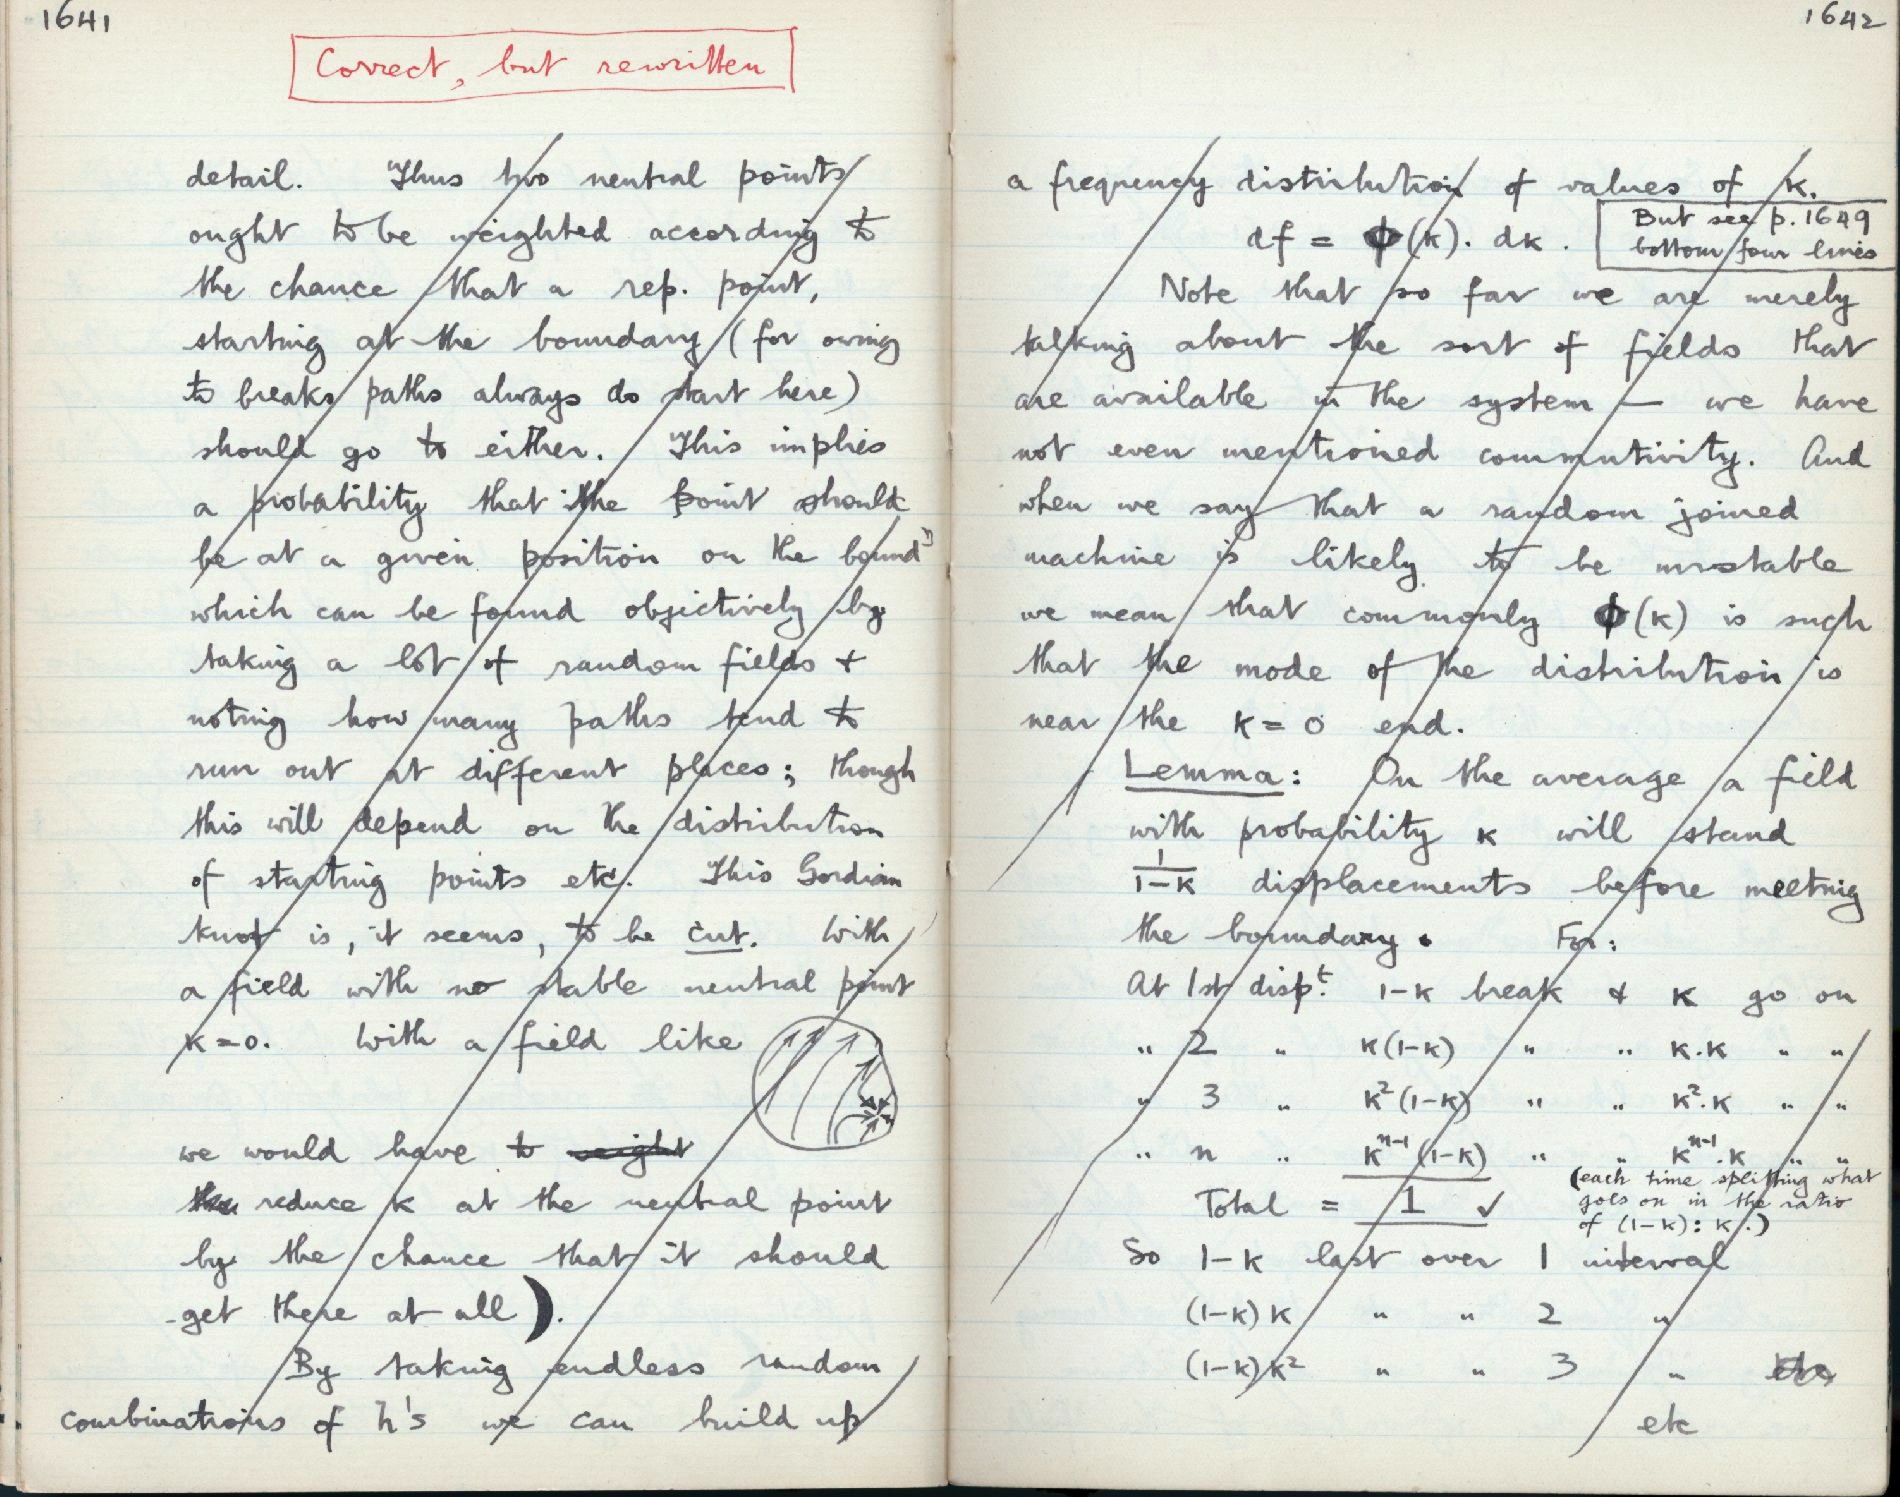 1641
Correct, but rewritten
detail. Thus two neutral points
ought to be weighted according to
the chance that a rep. point,
starting at the boundary (for owing
to breaks paths always do start here)
should go to either. This implies
a probability that the point should
be at a given position on the boundy
which can be found objectively by
taking a lot of random fields +
noting how many paths tend to
run out at different places; though
this will depend on the distribution
of starting points etc. This Gordian
knot is, it seems, to be cut. With
a field with no stable neutral point
K=0. With a field like
we would have to weight
reduce K at the neutral point
by the chance that it should
get there at all).
By taking endless random
combinations of h's we can build up
1642
a frequency distribution of values of K.
df = ϕ(K). dK.
But see p. 1649
bottom four lines
Note that so far we are merely
talking about the sort of fields that
are available in the system — we have
not even mentioned commutivity. And
when we say that a random joined
machine is likely to be unstable
we mean that commonly ϕ(K) is such
that the mode of the distribution is
near the K=0 end.
Lemma: On the average a field
with probability K will stand
1/(1-K) displacements before meeting
the boundary. For:
At 1st dispt. 1-K break & K go on
" 2 " K(1-K) " " K.K " "
" 3 " K²(1-K) " " K².K " "
" n " Kⁿ⁻¹(1-K) " " Kⁿ⁻¹.K " "
(each time splitting what
goes on in the ratio
of (1-K):K.)
Total = 1 ✓
So 1-K last over 1 interval
(1-K)K " " 2 "
(1-K)K² " " 3 " etc
etc